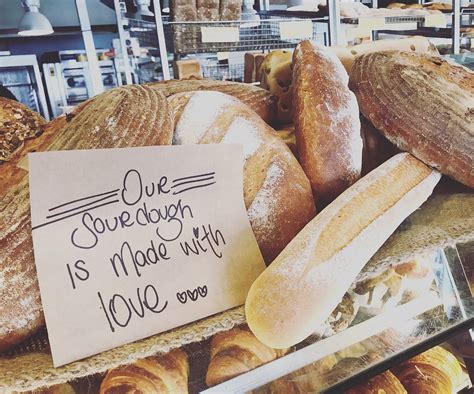 Our
Sourdough
is Made with
love